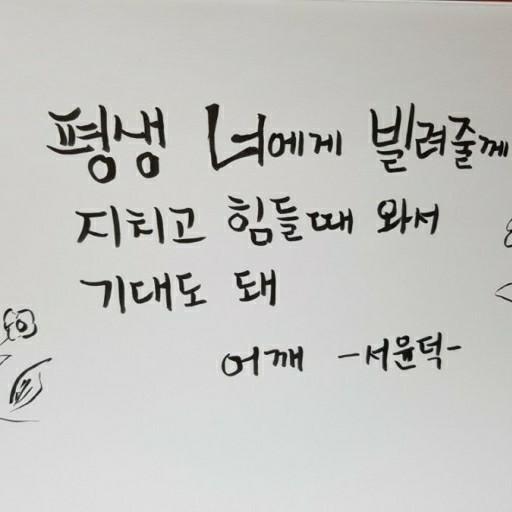 평생 너에게 빌려줄께
지치고 힘들때 와서
기대도 돼
어깨 -서윤덕-